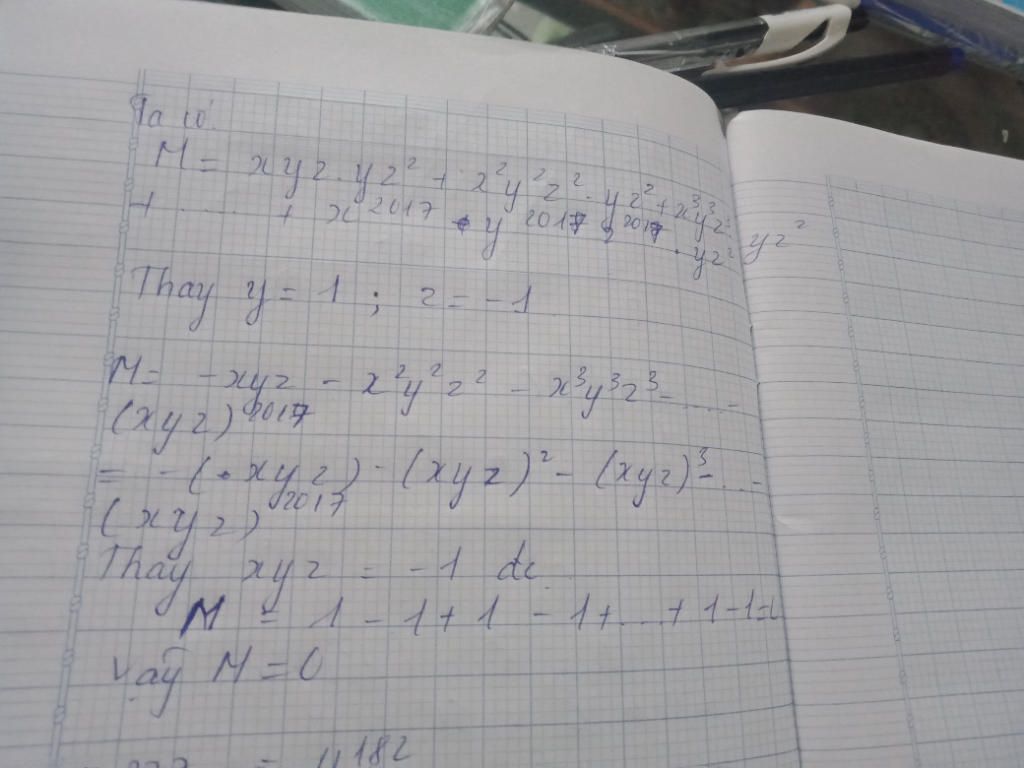 Ta có:
M = xyz.yz² + x²y²z².yz² + x³y³z³.yz²
+ ..... + x²⁰¹⁷.y²⁰¹⁷.z²⁰¹⁷.yz²
Thay y = 1 ; z = -1
M = -xyz - x²y²z² - x³y³z³ - ..... -
(xyz)²⁰¹⁷
= -(xyz) - (xyz)² - (xyz)³ - ... -
(xyz)²⁰¹⁷
Thay xyz = -1 dc
M = 1 - 1 + 1 - 1 + ... + 1 - 1 =
Vậy M = 0
= 4¹⁸²